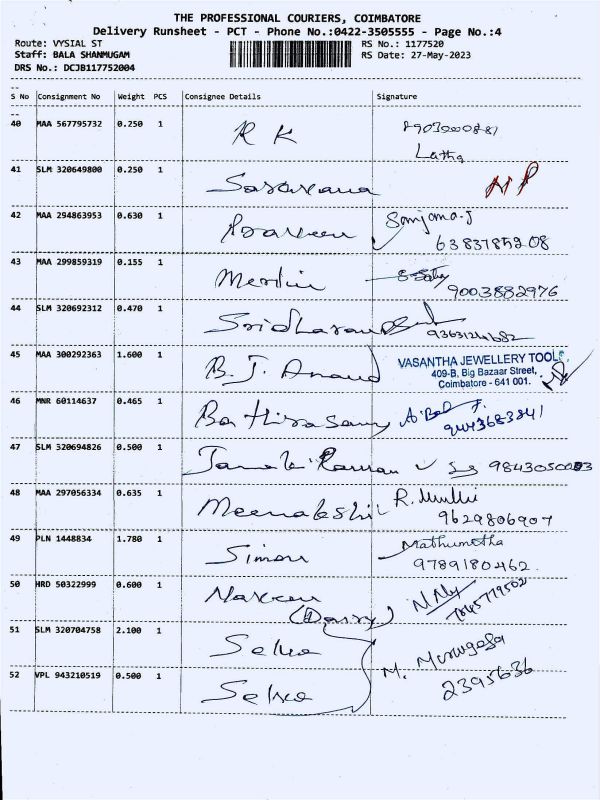 THE PROFESSIONAL COURIERS, COIMBATORE
Delivery Runsheet - PCT - Phone No.:0422-3505555 - Page No.:4
Route: VYSIAL ST RS No.: 1177520
Staff: BALA SHANMUGAM RS Date: 27-May-2023
DRS No.: DCJB117752004
S No Consignment No Weight PCS Consignee Details Signature
40 MAA 567795732 0.250 1 R K
Latha
41 SLM 320649800 0.250 1 Saravana
42 MAA 294863953 0.630 1 Praveen Sanjana.J
6383785208
43 MAA 299859319 0.155 1 Merlin
9003882976
44 SLM 320692312 0.470 1 Sridharan
45 MAA 300292363 1.600 1 B. J. Anand VASANTHA JEWELLERY TOOLS
409-B, Big Bazaar Street,
Coimbatore - 641 001.
46 MNR 60114637 0.465 1
47 SLM 320694826 0.500 1 Janaki Raman
48 MAA 297056334 0.635 1 Meenakshi R.
9629806907
49 PLN 1448834 1.780 1 Simon
9789180462.
50 HRD 50322999 0.600 1 Naveen
51 SLM 320704758 2.100 1 Selva M. Murugesa
52 VPL 943210519 0.500 1 Selva 2395636